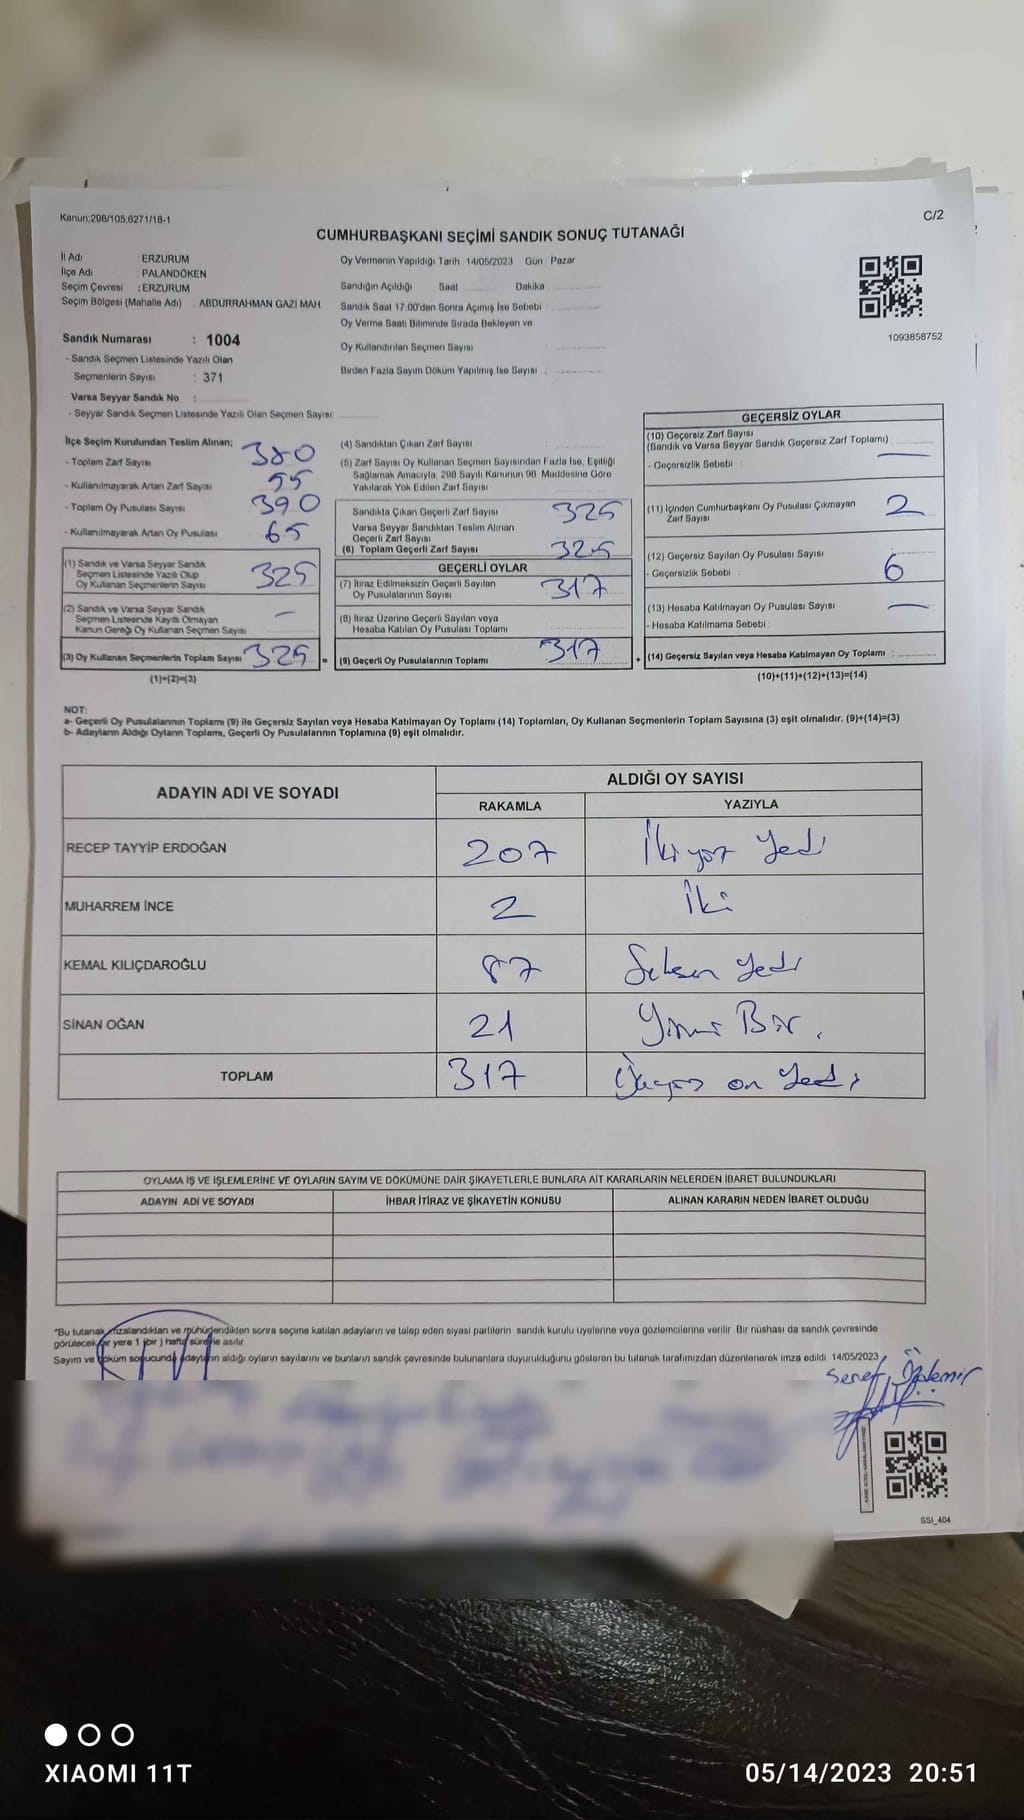 Kanun;298/105;6271/18-1
C/2
CUMHURBAŞKANI SEÇİMİ SANDIK SONUÇ TUTANAĞI
İl Adı : ERZURUM
İlçe Adı : PALANDÖKEN
Seçim Çevresi : ERZURUM
Seçim Bölgesi (Mahalle Adı) . ABDURRAHMAN GAZİ MAH.
Oy Vermenin Yapıldığı Tarih : 14/05/2023 Gün : Pazar
Sandığın Açıldığı Saat Dakika
Sandık Saat 17.00'den Sonra Açımış İse Sebebi :
Oy Verme Saati Bitiminde Sırada Bekleyen ve
Oy Kullandırılan Seçmen Sayısı
Birden Fazla Sayım Döküm Yapılmış İse Sayısı :
1093858752
Sandık Numarası : 1004
- Sandık Seçmen Listesinde Yazılı Olan
Seçmenlerin Sayısı : 371
Varsa Seyyar Sandık No :
- Seyyar Sandık Seçmen Listesinde Yazılı Olan Seçmen Sayısı
İlçe Seçim Kurulundan Teslim Alınan;
- Toplam Zarf Sayısı 380
- Kullanılmayarak Artan Zarf Sayısı 55
- Toplam Oy Pusulası Sayısı 390
- Kullanılmayarak Artan Oy Pusulası 65
(1) Sandık ve Varsa Seyyar Sandık
Seçmen Listesinde Yazılı Olup
Oy Kullanan Seçmenlerin Sayısı 325
(2) Sandık ve Varsa Seyyar Sandık
Seçmen Listesinde Kayıtlı Olmayan
Kanun Gereği Oy Kullanan Seçmen Sayısı –
(3) Oy Kullanan Seçmenlerin Toplam Sayısı 325 =
(1)+(2)=(3)
(4) Sandıktan Çıkan Zarf Sayısı
(5) Zarf Sayısı Oy Kullanan Seçmen Sayısından Fazla İse, Eşitliği
Sağlamak Amacıyla, 298 Sayılı Kanunun 98. Maddesine Göre
Yakılarak Yok Edilen Zarf Sayısı
Sandıkta Çıkan Geçerli Zarf Sayısı 325
Varsa Seyyar Sandıktan Teslim Alınan
Geçerli Zarf Sayısı
(6) Toplam Geçerli Zarf Sayısı 325
GEÇERLİ OYLAR
(7) İtiraz Edilmeksizin Geçerli Sayılan
Oy Pusulalarının Sayısı 317
(8) İtiraz Üzerine Geçerli Sayılan veya
Hesaba Katılan Oy Pusulası Toplamı
(9) Geçerli Oy Pusulalarının Toplamı 317 +
GEÇERSİZ OYLAR
(10) Geçersiz Zarf Sayısı
(Sandık ve Varsa Seyyar Sandık Geçersiz Zarf Toplamı) –
- Geçersizlik Sebebi :
(11) İçinden Cumhurbaşkanı Oy Pusulası Çıkmayan
Zarf Sayısı 2
(12) Geçersiz Sayılan Oy Pusulası Sayısı
- Geçersizlik Sebebi : 6
(13) Hesaba Katılmayan Oy Pusulası Sayısı –
- Hesaba Katılmama Sebebi :
(14) Geçersiz Sayılan veya Hesaba Katılmayan Oy Toplamı :
(10)+(11)+(12)+(13)=(14)
NOT:
a- Geçerli Oy Pusulalarının Toplamı (9) ile Geçersiz Sayılan veya Hesaba Katılmayan Oy Toplamı (14) Toplamları, Oy Kullanan Seçmenlerin Toplam Sayısına (3) eşit olmalıdır. (9)+(14)=(3)
b- Adayların Aldığı Oyların Toplamı, Geçerli Oy Pusulalarının Toplamına (9) eşit olmalıdır.
ADAYIN ADI VE SOYADI ALDIĞI OY SAYISI
RAKAMLA YAZIYLA
RECEP TAYYİP ERDOĞAN 207 İkiyüz Yedi
MUHARREM İNCE 2 İki
KEMAL KILIÇDAROĞLU 87 Seksen Yedi
SİNAN OĞAN 21 Yirmi Bir.
TOPLAM 317 Üçyüz on Yedi
OYLAMA İŞ VE İŞLEMLERİNE VE OYLARIN SAYIM VE DÖKÜMÜNE DAİR ŞİKAYETLERLE BUNLARA AİT KARARLARIN NELERDEN İBARET BULUNDUKLARI
ADAYIN ADI VE SOYADI İHBAR İTİRAZ VE ŞİKAYETİN KONUSU ALINAN KARARIN NEDEN İBARET OLDUĞU
"Bu tutanak imzalandıktan ve mühürlendikten sonra seçime katılan adayların ve talep eden siyasi partilerin sandık kurulu üyelerine veya gözlemcilerine verilir. Bir nüshası da sandık çevresinde
görülecek bir yere 1 (bir) hafta süreyle asılır.
Sayım ve döküm sonucunda adayların aldığı oyların sayılarını ve bunların sandık çevresinde bulunanlara duyurulduğunu gösteren bu tutanak tarafımızdan düzenlenerek imza edildi. 14/05/2023
Şeref Özdemir
SSI_404
XIAOMI 11T
05/14/2023 20:51